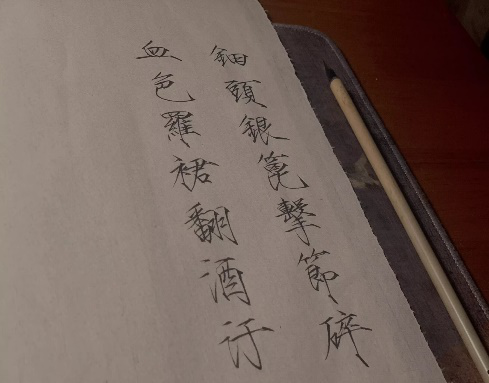 鈿頭銀篦擊節碎
血色羅裙翻酒汙